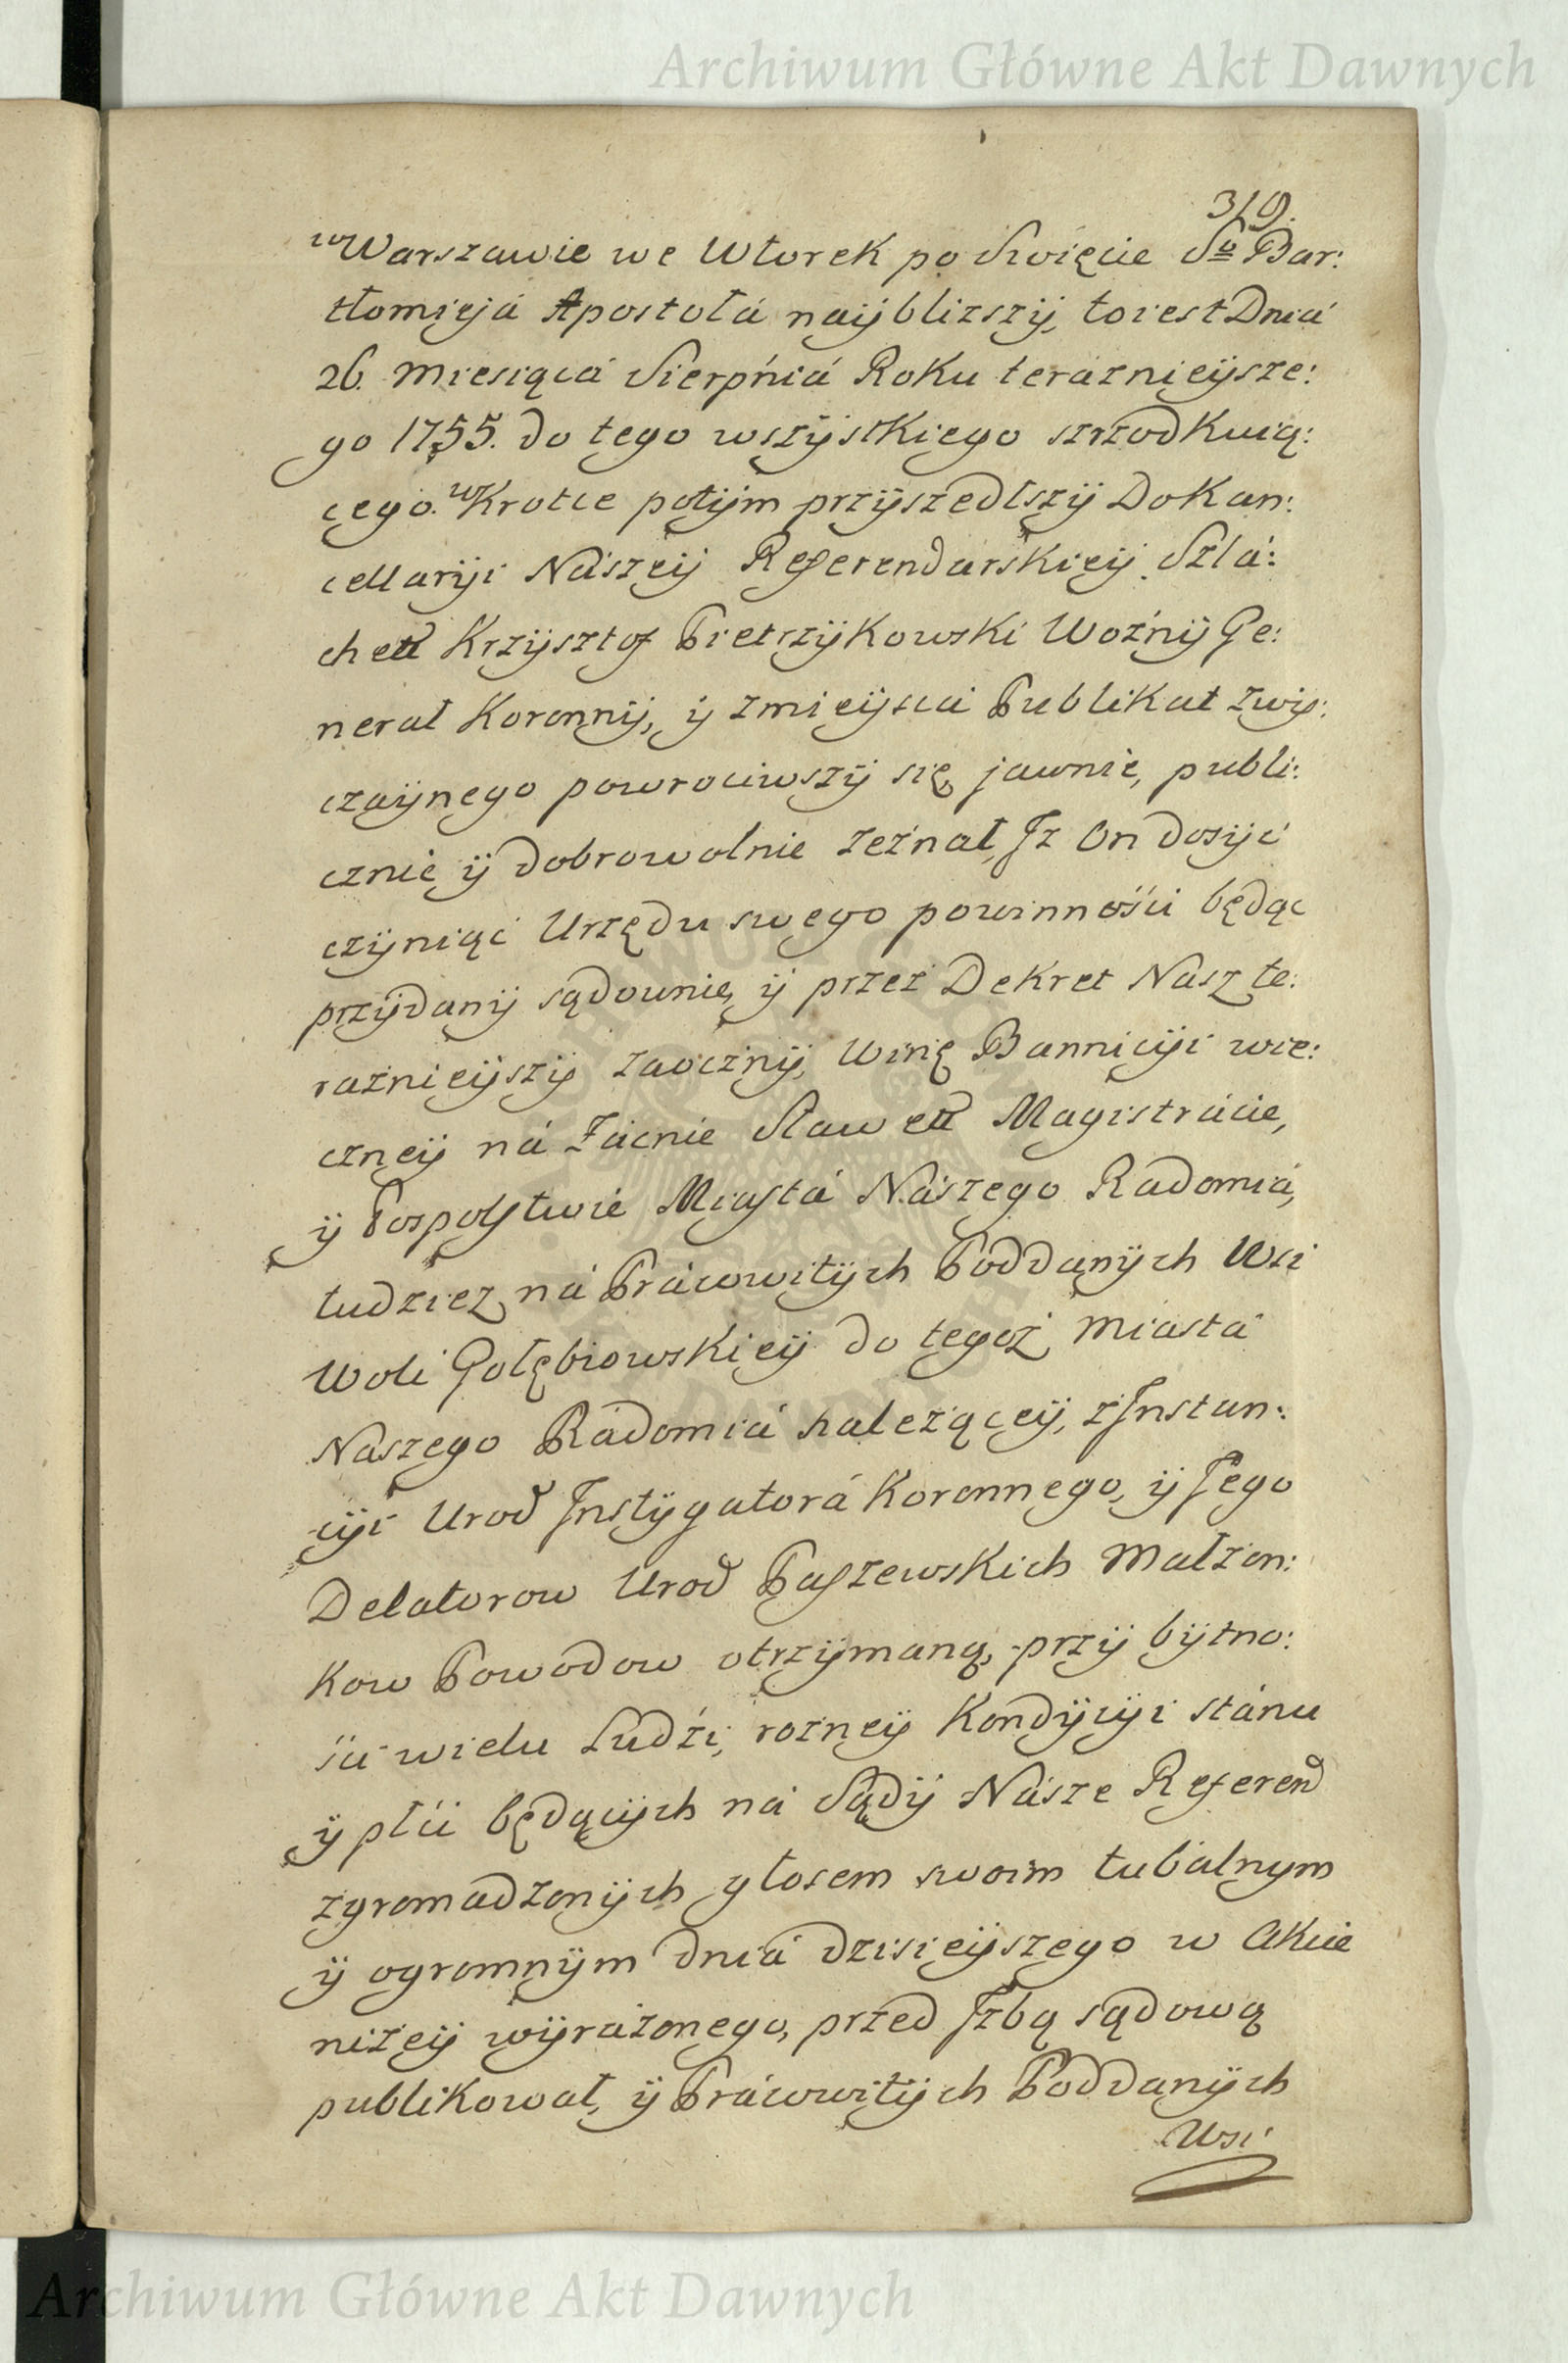 Archiwum Główne Akt Dawnych
319.
w Warszawie we Wtorek po Swięcie Sgo Bar:
tłomieja Apostoła náÿblizszÿ, to iest Dniá
26. Miesiącá Sierpniá Roku teraznieÿsze:
go 1755. do tego wszÿstkiego szrzodkuią:
cego. w Krotce potÿm przÿszedłszÿ Do Kan:
cellarÿi Nászeÿ Referendarskieÿ Szlá:
chett Krzÿsztof Pietrzÿkowski Woźnÿ Ge:
nerał Koronnÿ, ÿ z mieÿscá Publikat zwÿ:
czaÿnego powrociwszÿ się, jawnie, publi:
cznie ÿ dobrowolnie zeznał, Jz On dosÿć
czÿniąc Urzędu swego powinności będąc
przÿdanÿ sądownie, ÿ przez Dekret Nasz te:
raznieÿszÿ zaocznÿ, Winę Bannicÿi wie:
czneÿ ná Zácnie Sławett Magistrácie,
ÿ Pospolstwie Miastá Nászego Radomiá,
tudziez ná Prácowitÿch Poddanÿch Wsi
Woli Gołębiowskieÿ do tegoz Miastá
Naszego Radomiá nalezącеÿ, z Jnstan:
cÿi Urod Jnstÿgatorá Koronnego, ÿ Jego
Delatorow Urod Paszewskich Małzon:
kow Powodow otrzÿmaną, przÿ bÿtno:
ści wielu Ludzi, rozneÿ Kondÿcÿi stánu
ÿ płci będącÿch ná Sądÿ Násze Referend
zgromadzonÿch głosem swoim tubalnym
ÿ ogromnÿm dniá dzisieÿszego w Akcie
nizeÿ wÿrázonego, przed Jzbą sądową
publikował, ÿ Prácowitÿch Poddanÿch
Wsi
Archiwum Główne Akt Dawnych